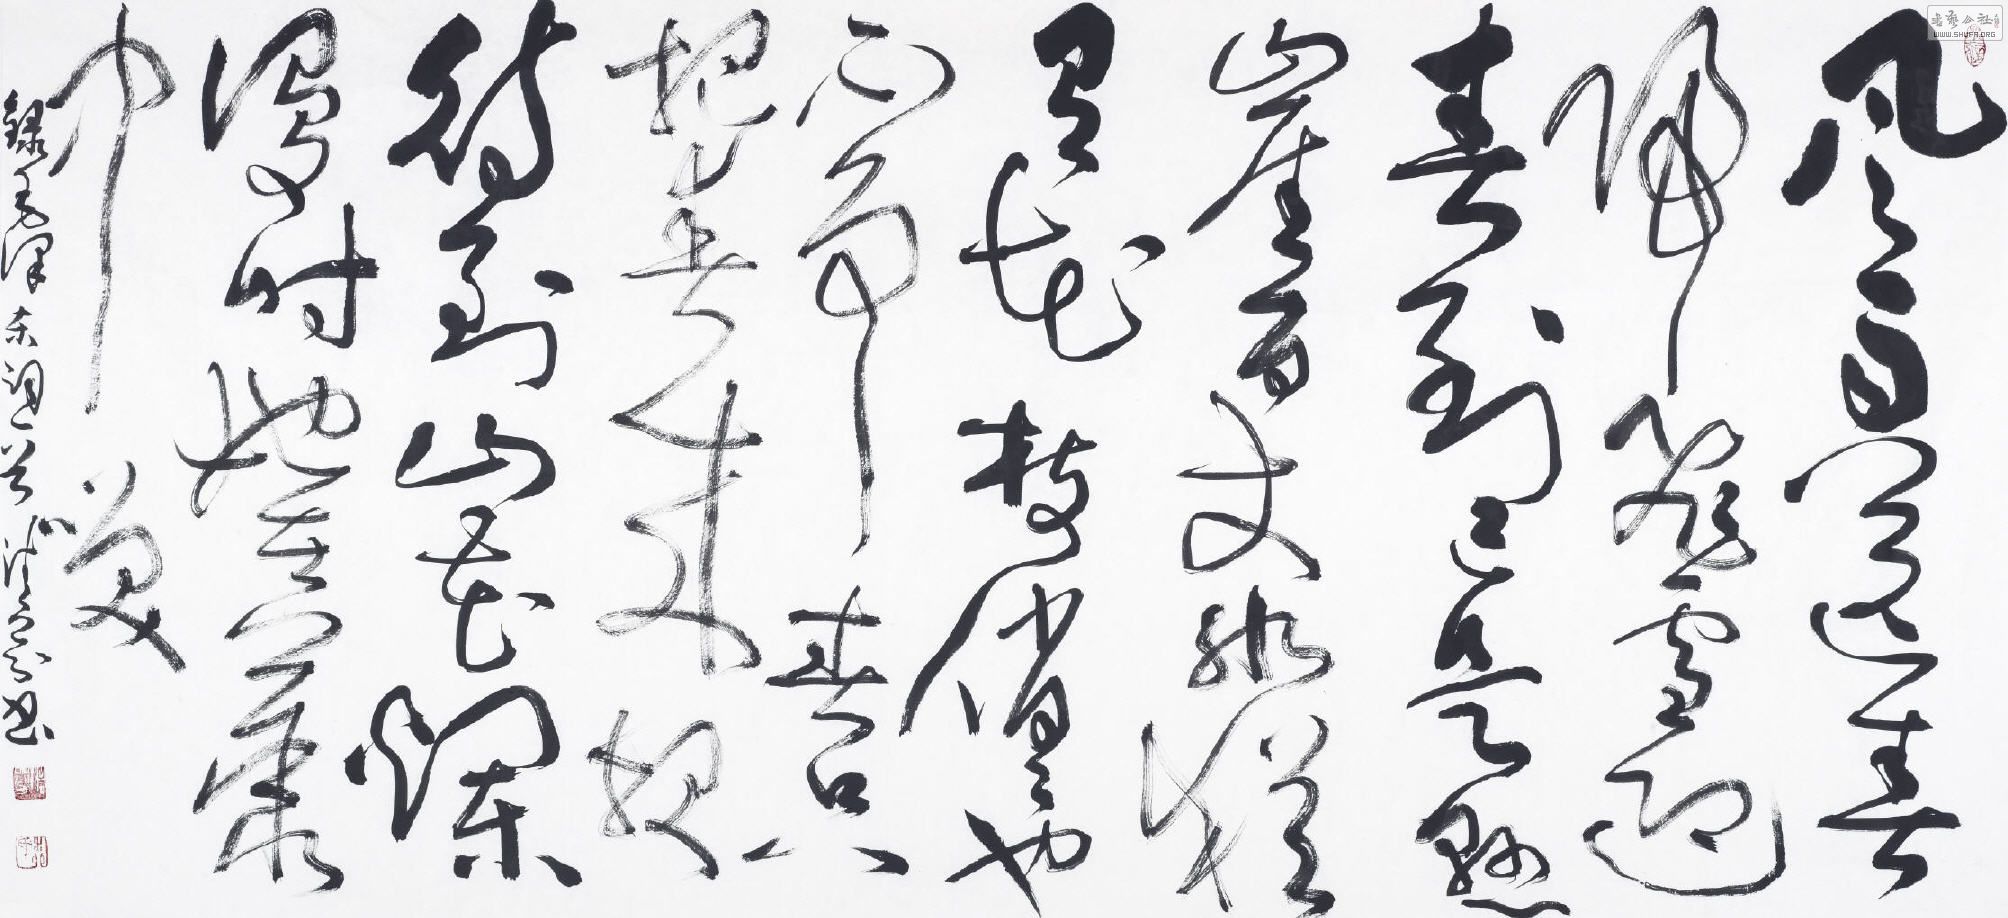 风雨送春
归飛雪迎
春到已是懸
崖百丈冰犹
有花枝俏々也
不争春只
把春来报
待到山花烂
漫时她在叢
中笑
録毛泽东词一首 书
书艺公社
WWW.SHUFA.ORG